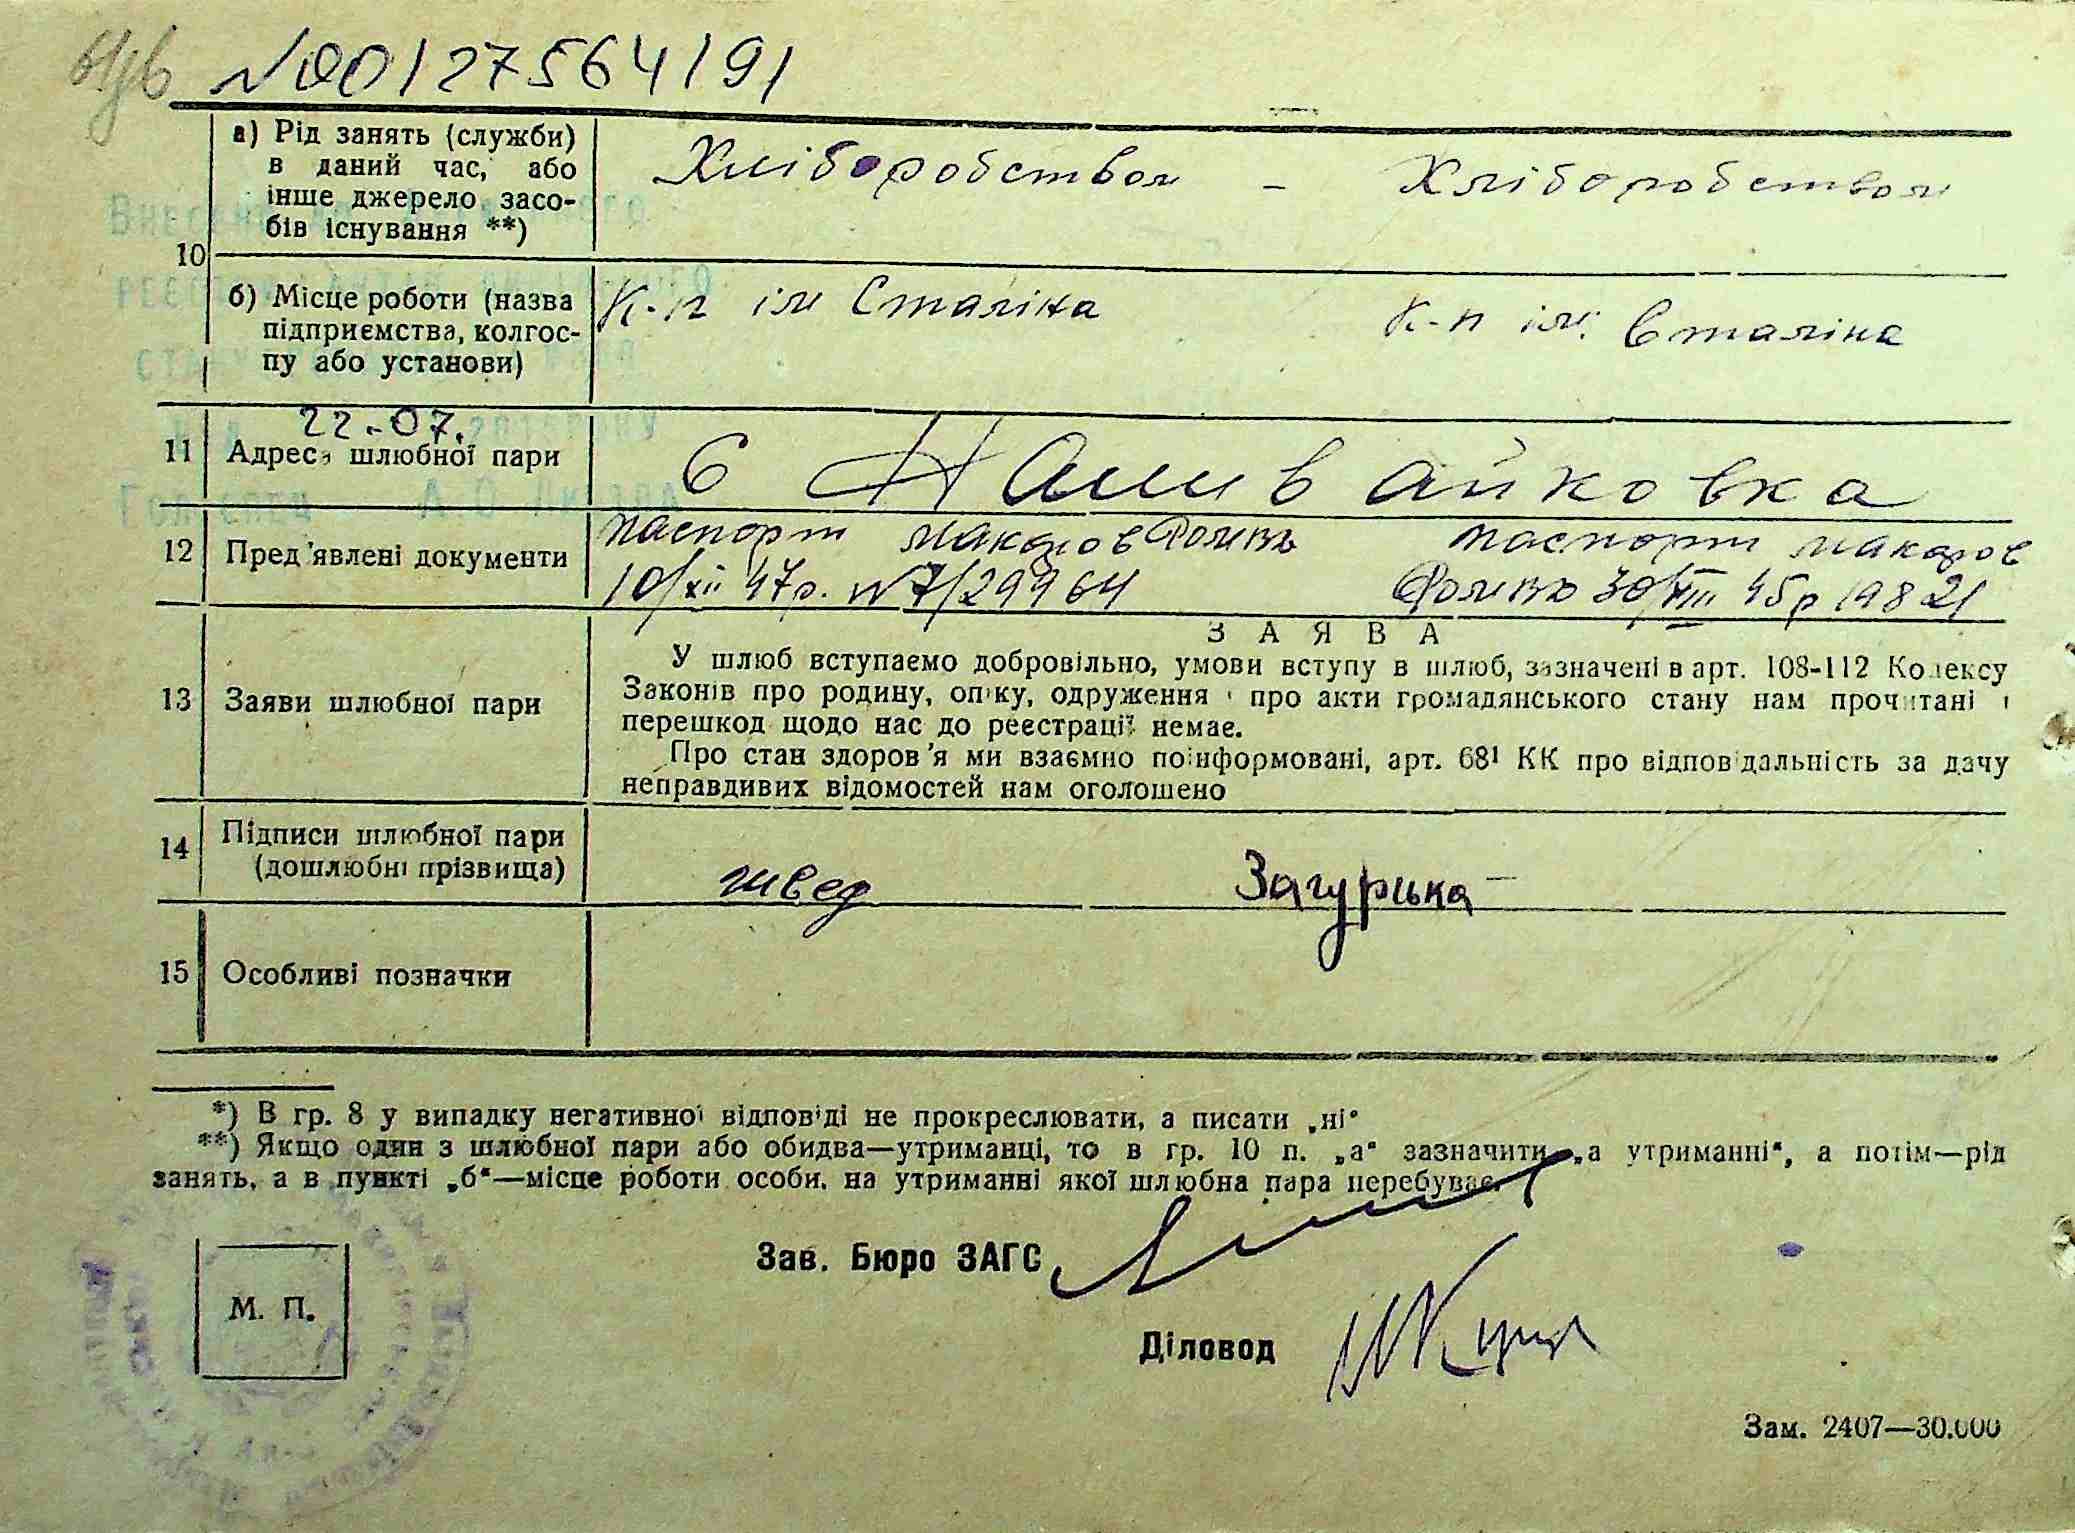 №00127564191
а) Рід занять (служби)
в даний час, або
інше джерело засо-
бів існування **)
Хліборобством - Хліборобством
10
б) Місце роботи (назва
підприємства, колгос-
пу або установи)
К-п ім Сталіна К-п ім: Сталіна
22.-07.
11 Адреса шлюбної пари
с Наливайковка
12 Пред'явлені документи
паспорт макаров паспорт макаров
10/XII 47р. №7/29964 30/VIII 45р 19821
ЗАЯВА
13 Заяви шлюбної пари
У шлюб вступаємо добровільно, умови вступу в шлюб, зазначені в арт. 108-112 Кодексу
Законів про родину, опіку, одруження і про акти громадянського стану нам прочитані і
перешкод щодо нас до реєстрації немає.
Про стан здоров'я ми взаємно поінформовані, арт. 68¹ КК про відповідальність за дачу
неправдивих відомостей нам оголошено
14 Підписи шлюбної пари
(дошлюбні прізвища)
швед Загурська
15 Особливі позначки
*) В гр. 8 у випадку негативної відповіді не прокреслювати, а писати „ні“
**) Якщо один з шлюбної пари або обидва—утриманці, то в гр. 10 п. „а“ зазначити „а утриманні“, а потім—рід
занять, а в пункті „б“—місце роботи особи, на утриманні якої шлюбна пара перебуває.
Зав. Бюро ЗАГС
М. П.
Діловод
Зам. 2407—30.000